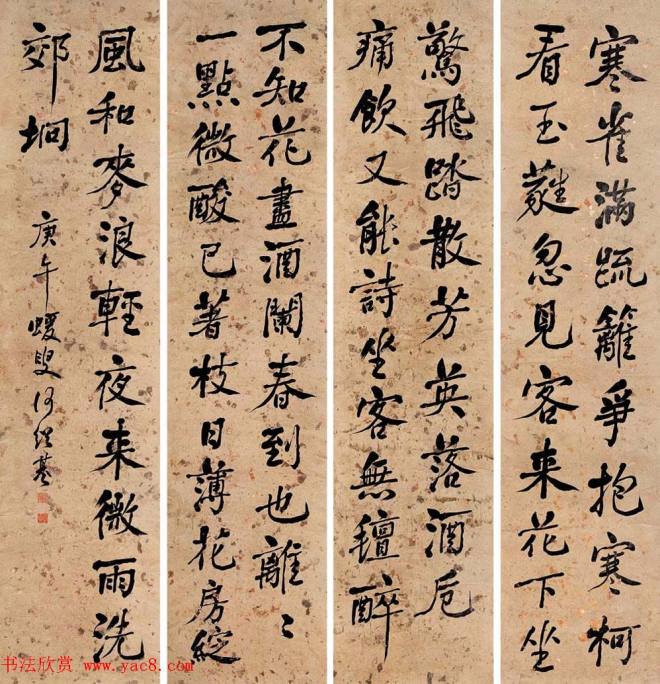 寒雀滿疏籬爭抱寒柯
看玉蕤忽見客來花下坐
驚飛踏散芳英落酒卮
痛飲又能詩坐客無氊醉
不知花盡酒闌春到也離〻
一點微酸已著枝日薄花房綻
風和麥浪輕夜來微雨洗
郊坰
庚午蝯叟何紹基
书法欣赏 www.yac8.com